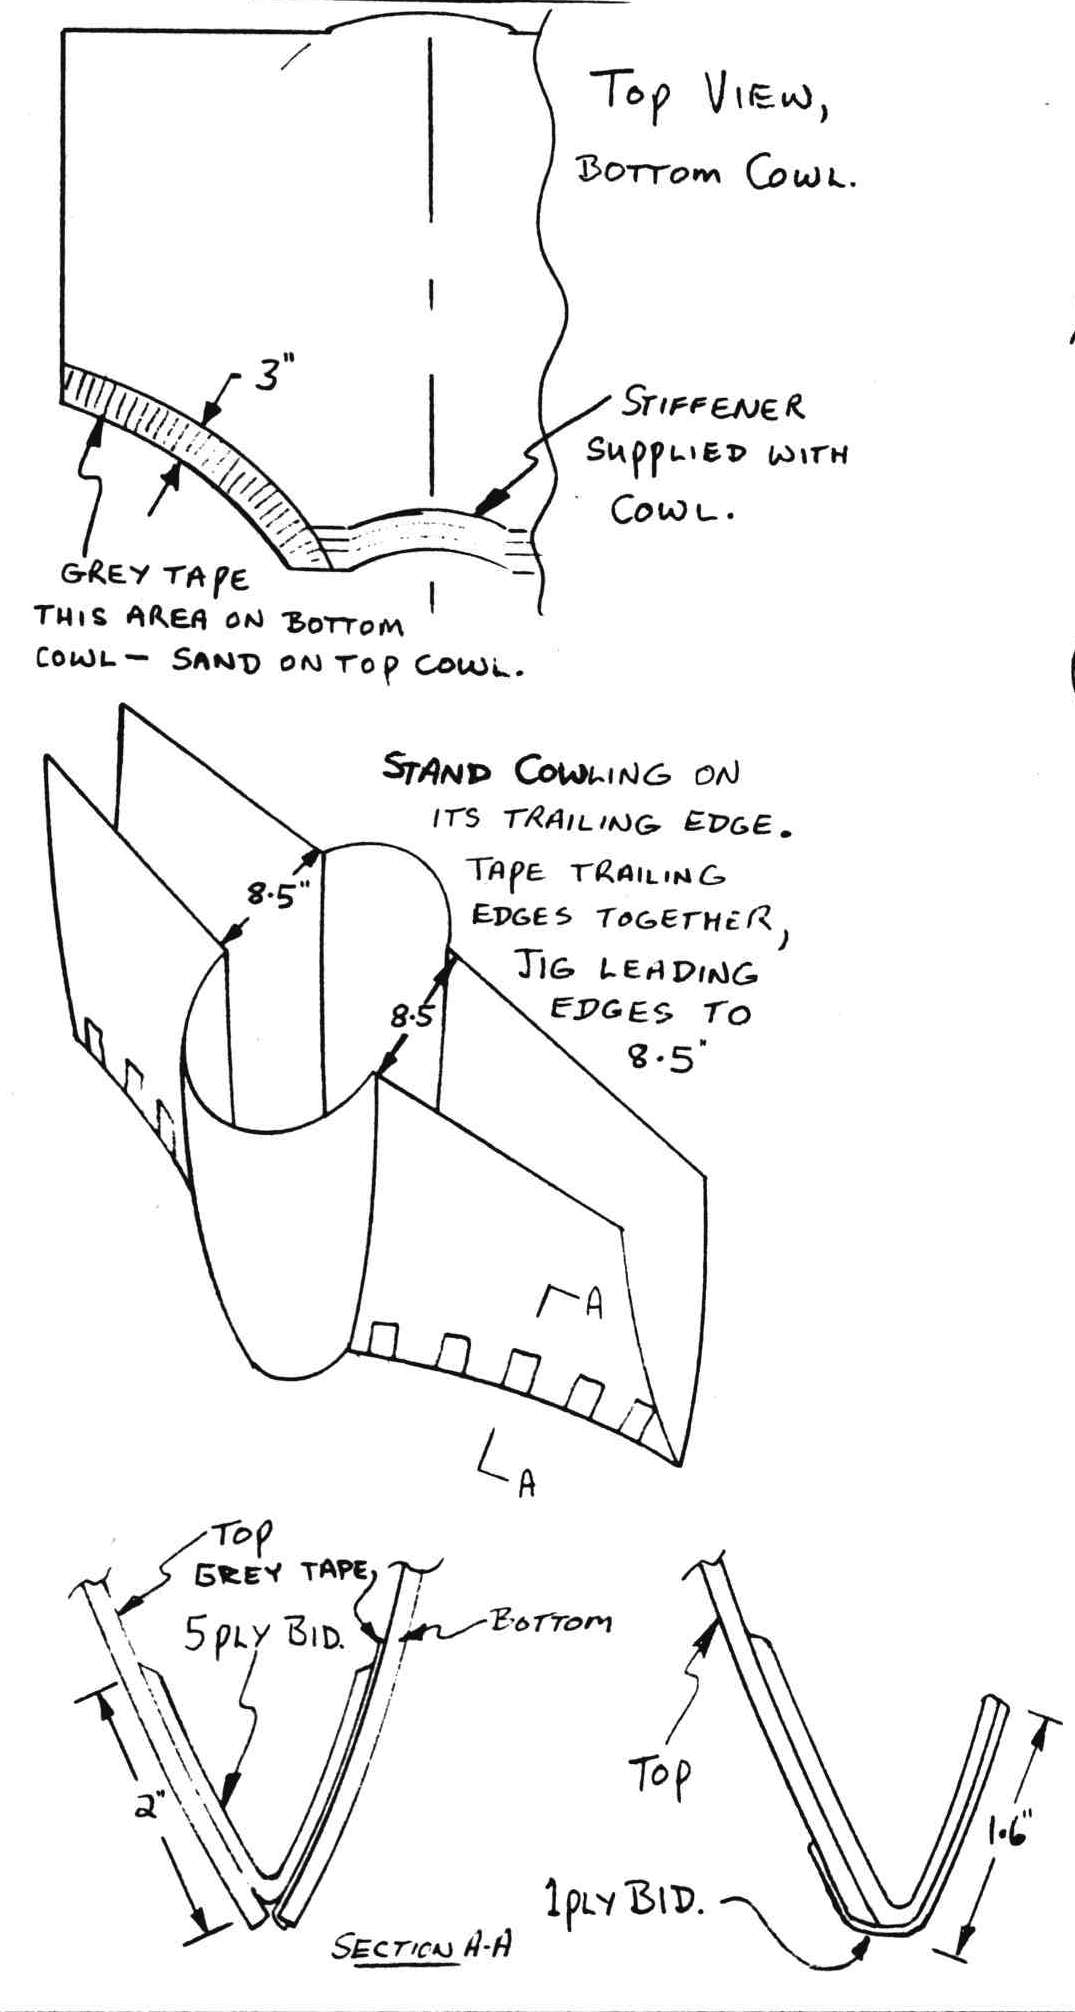 TOP VIEW,
BOTTOM COWL.
3"
STIFFENER
SUPPLIED WITH
COWL.
GREY TAPE
THIS AREA ON BOTTOM
COWL — SAND ON TOP COWL.
STAND COWLING ON
ITS TRAILING EDGE.
TAPE TRAILING
EDGES TOGETHER,
JIG LEADING
EDGES TO
8.5"
8.5"
8.5
A
A
TOP
GREY TAPE,
5 PLY BID.
BOTTOM
2"
TOP
1.6"
1 PLY BID.
SECTION A-A